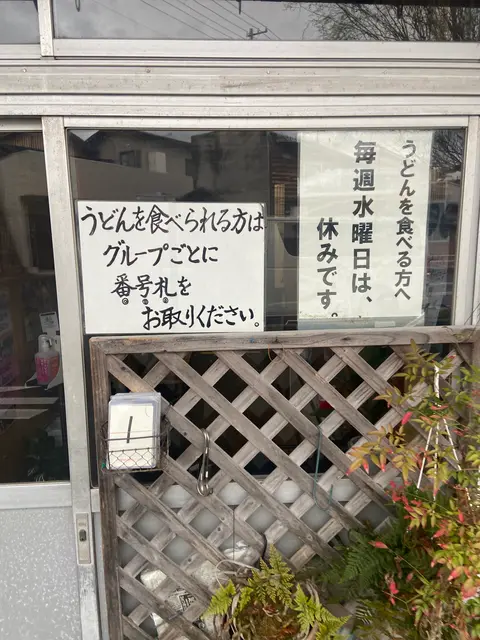 うどんを食べられる方は
グループごとに
番号札を
お取りください。
うどんを食べる方へ
毎週水曜日は、
休みです。
1